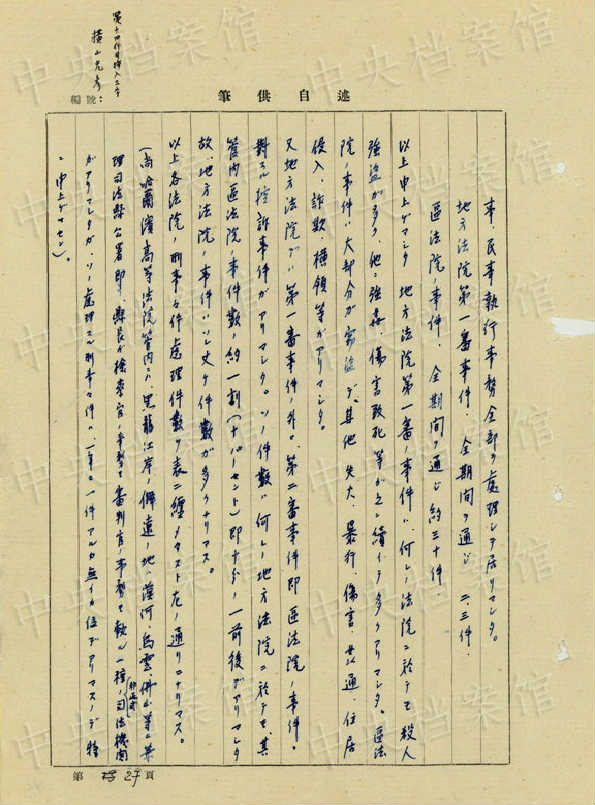 述自供筆
編號:
横山光彦
事、民事執行事務全部ヲ処理シテ居リマシタ。
地方法院第一審事件、全期間ヲ通ジ 二、三件、
區法院ノ事件、全期間ヲ通ジ 約三十件、
以上申上ゲマシタ 地方法院第一審ノ事件ハ、何レノ法院ニ於テモ殺人
強盗が多ク、他ニ強姦、傷害致死等ガ之ニ續イテ多クアリマシタ。區法
院ノ事件ハ大部分ガ窃盗デ、其他失火、暴行、傷害、共通、住居
侵入、詐欺、横領等ガアリマシタ。
又地方法院デハ第一審事件ノ外、第二審事件即區法院ノ事件
對スル控訴事件ガアリマシタ。ソノ件數ハ何レノ地方法院ニ於テモ、其
管内區法院ノ事件數ノ約一割(十パーセント)即 一前後デアリマシタ
故、地方法院ノ事件ハソレ丈ケ件數ガ多クナリマス。
以上各法院ノ刑事々件處理件數ヲ表ニ纏メマスト左ノ通リニナリマス。
(尚哈爾濱高等法院管内ニハ、黒龍江岸ノ僻遠ノ地ニ漠河、烏雲、佛山等ニ兼
理司法縣公署即チ、縣長ガ檢察官ノ事務ト審判官ノ事務ヲ執ル一種ノ司法機關
ガアリマシタガ、ソノ處理スル刑事々件ハ一年ニ一件アルカ無イカ位デアリマスノデ特
ニ申上ゲマセン)。
第 27 頁